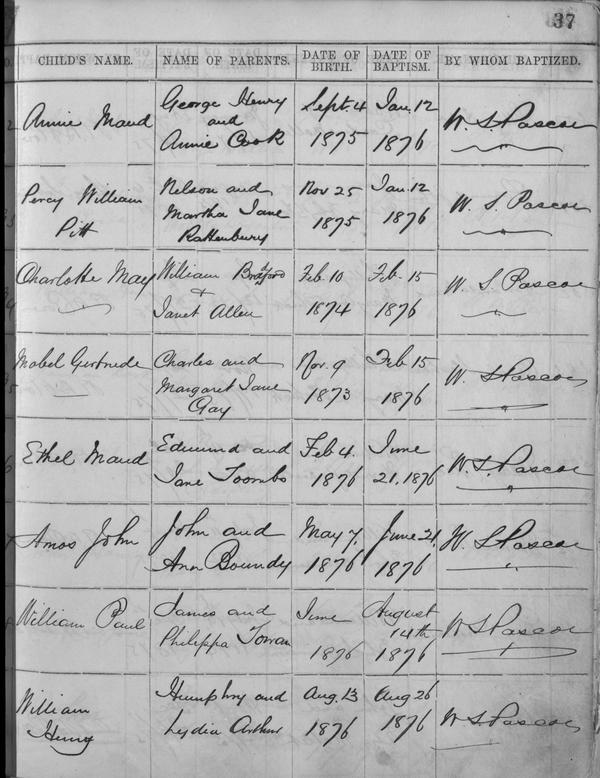 37
CHILD'S NAME. NAME OF PARENTS. DATE OF BIRTH. DATE OF BAPTISM. BY WHOM BAPTIZED.
Annie Maud George Henry and Annie Cook Sept. 4 1875 Jan. 12 1876 W. S. Pascoe
Percy William Pitt Nelson and Martha Jane Rattenbury Nov 25 1875 Jan. 12 1876 W. S. Pascoe
Charlotte May William Bradford & Janet Allen Feb. 10 1874 Feb. 15 1876 W. S. Pascoe
Mabel Gertrude Charles and Margaret Jane Gay Nov. 9 1873 Feb 15 1876 W. S Pascoe
Ethel Maud Edmund and Jane Toombs Feb 4. 1876 June 21, 1876 W. S. Pascoe
Amos John John and Ann Boundy May 7. 1876 June 21, 1876 W. S Pascoe
William Paul James and Philippa June 1876 August 14th 1876 W S Pascoe
William Henry Humphry and Lydia Arthur Aug. 13 1876 Aug 26 1876 W. S. Pascoe